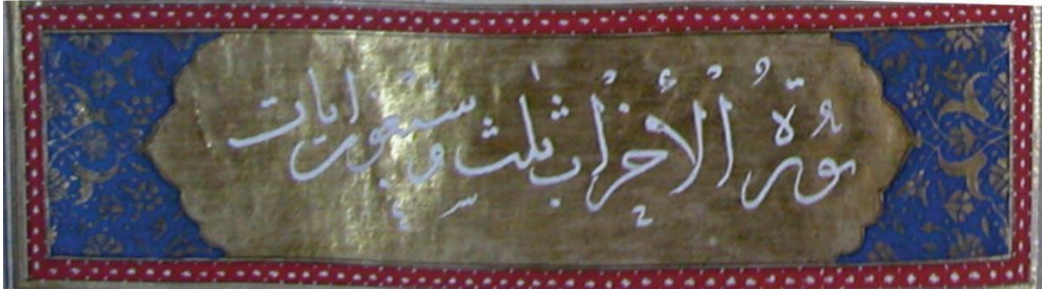 سورة الأحزاب ثلث وسبعون ايات